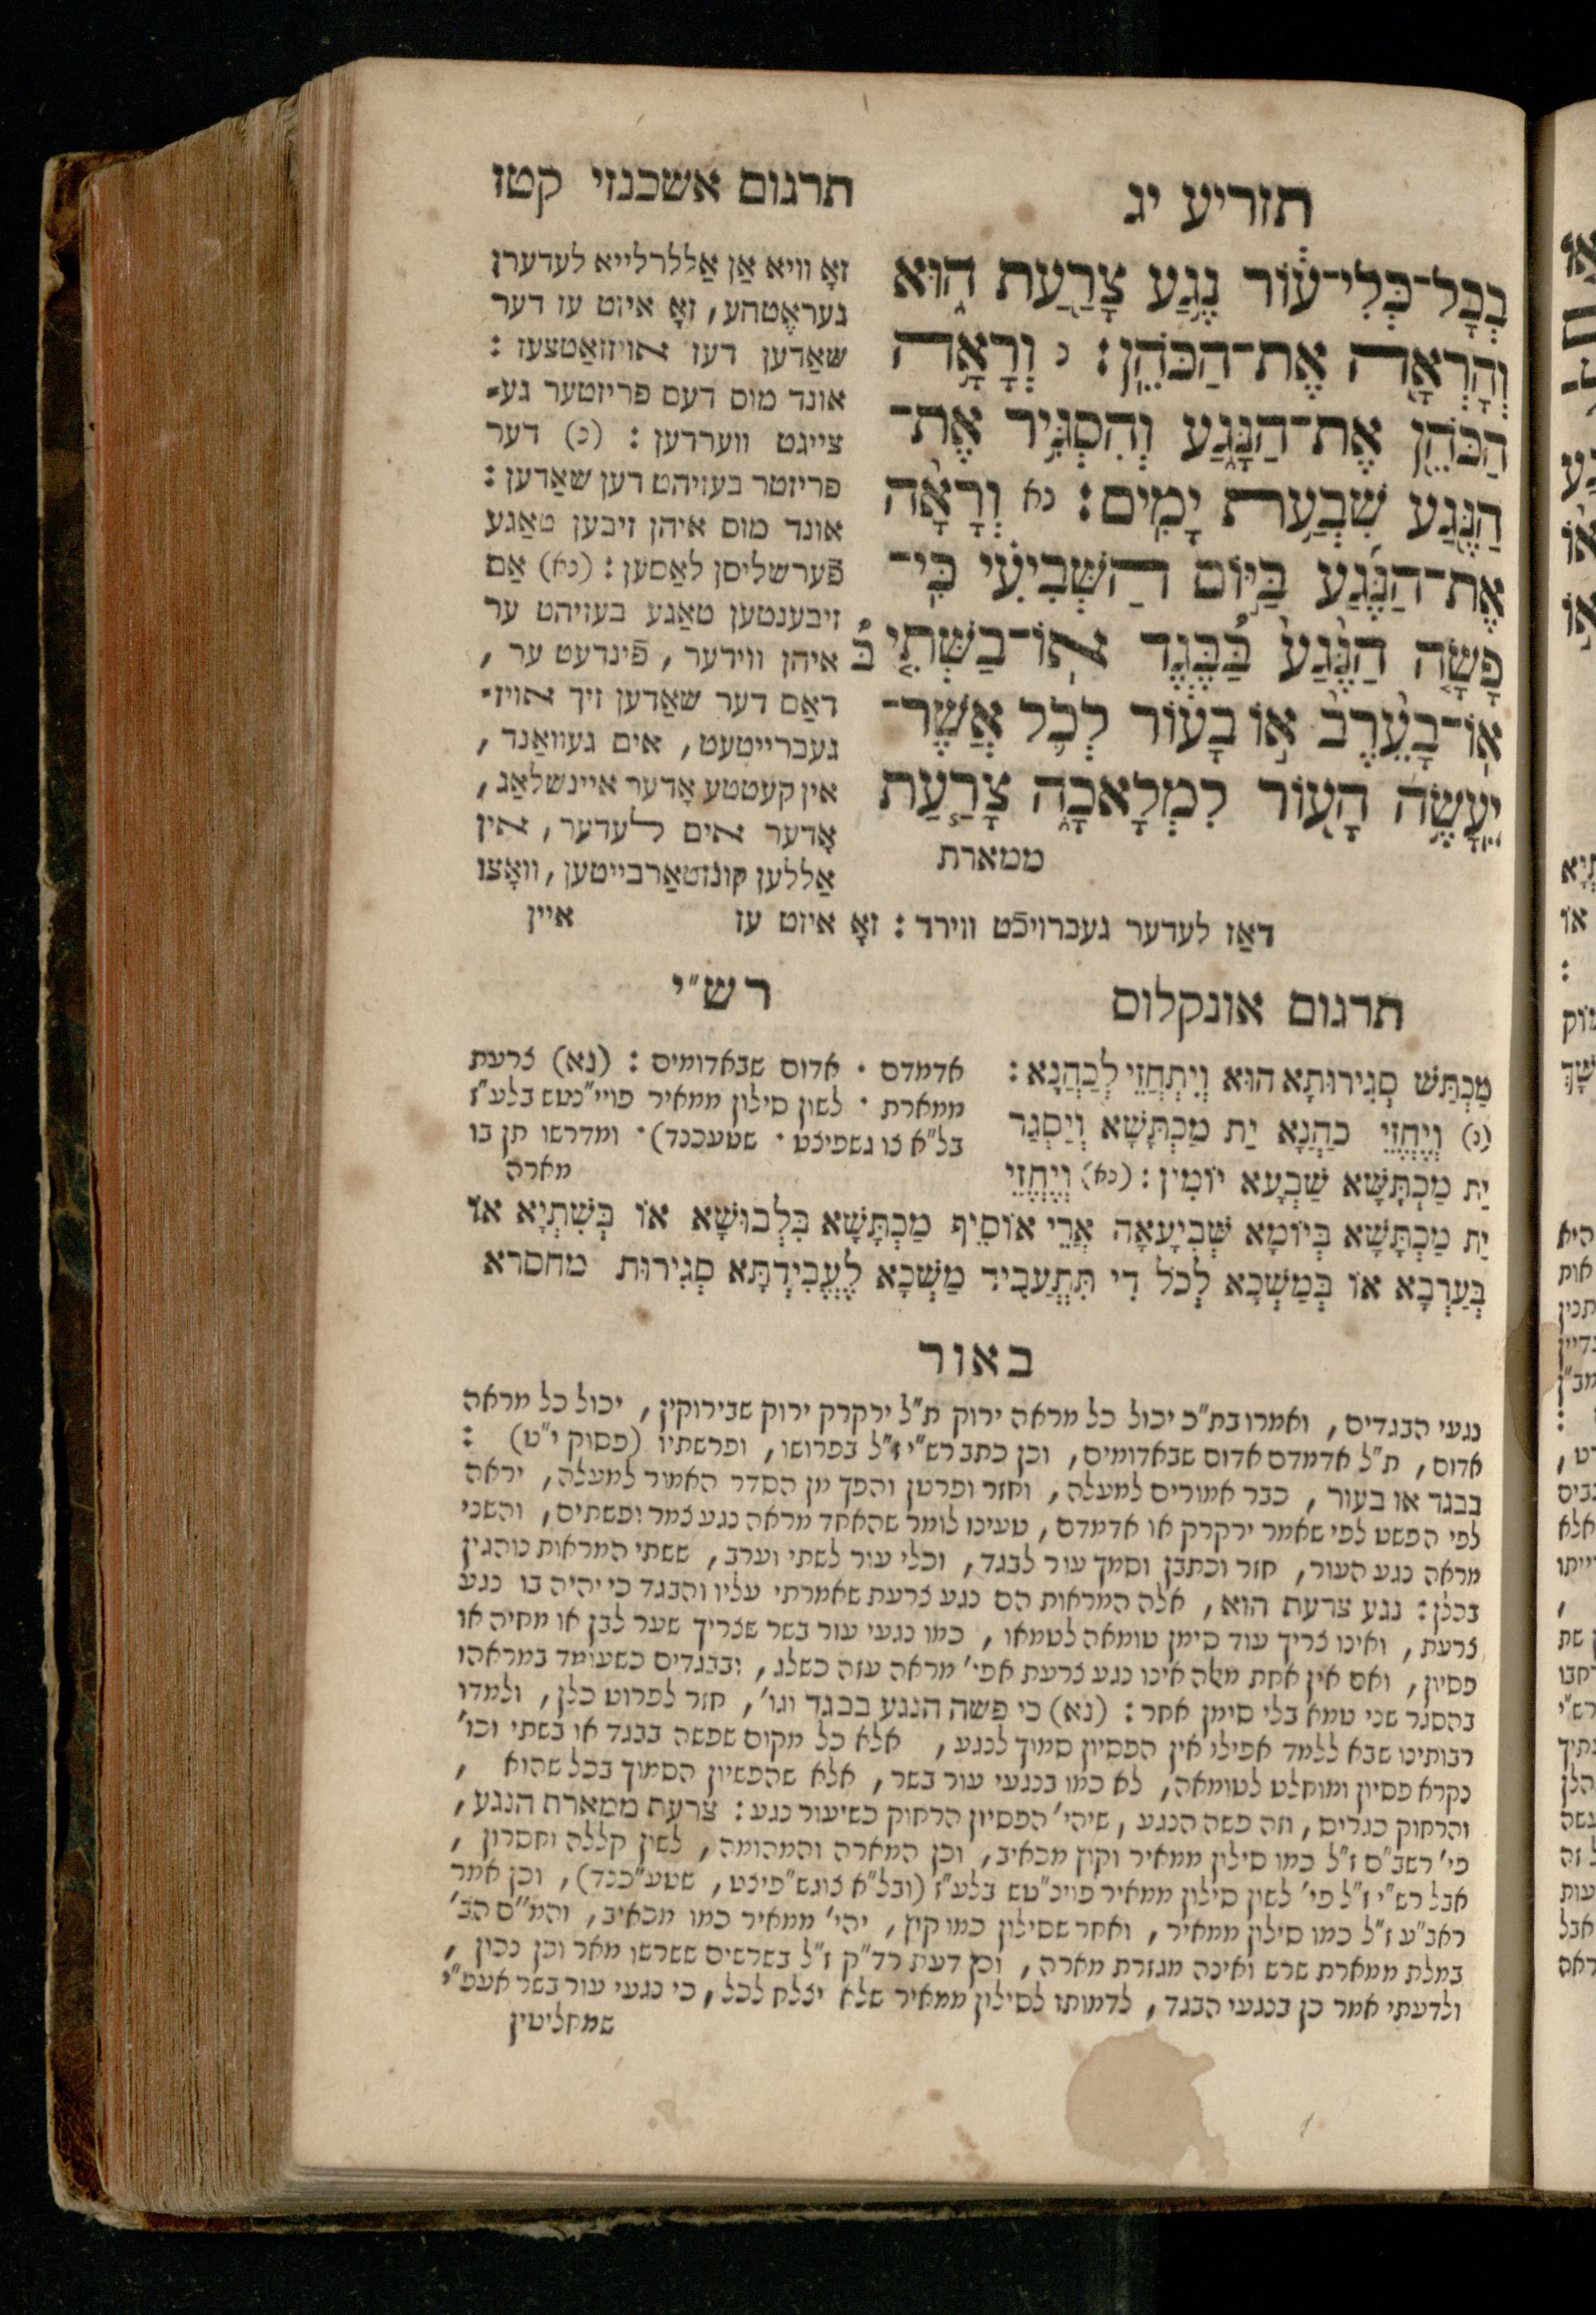 תזריע יג
בְּכָל־כְּלִי־ע֔וֹר נֶ֥גַע צָרַ֖עַת ה֑וּא
וְהָרְאָ֖ה אֶת־הַכֹּהֵֽן׃ נ וְרָאָ֥ה
הַכֹּהֵ֖ן אֶת־הַנָּ֑גַע וְהִסְגִּ֥יר אֶת־
הַנֶּ֖גַע שִׁבְעַ֥ת יָמִֽים׃ נא וְרָאָ֨ה
אֶת־הַנֶּ֜גַע בַּיּ֣וֹם הַשְּׁבִיעִ֗י כִּֽי־
פָשָׂ֤ה הַנֶּ֙גַע֙ בַּ֠בֶּגֶד אֽוֹ־בַשְּׁתִ֤י
אֽוֹ־בָעֵ֙רֶב֙ א֣וֹ בָע֔וֹר לְכֹ֛ל אֲשֶׁר־
יֵעָשֶׂ֥ה הָע֖וֹר לִמְלָאכָ֑ה צָרַ֧עַת
ממארת
תרגום אשכנזי קטז
זאָ וויא אַן אַללרלייא לעדערן
גערעטהע, זאָ איזט עז דער
שאַדען דעז אויזזאַטצעז :
אונד מוס דעם פריזטער גע-
צייגט ווערדען : (נ) דער
פריזטר בעזיהט דען שאַדען :
אונד מוס איהן זיבען טאַגע
פֿערשליסן לאַסען : (נא) אַם
זיבענטען טאַגע בעזיהט ער
איהן ווידער, פֿינדעט ער,
דאַס דער שאַדען זיך אויז-
געברייטעט, אים געוואַנד,
אין קעטטע אָדער איינשלאַג,
אָדער אים לעדער, אין
אַללען קונזטאַרבייטען, וואָצו
דאַז לעדער געברויכֿט ווירד : זאָ איזט עז
איין
תרגום אונקלוס
מַכְתַּשׁ סְגִירוּתָא הוּא וְיִתְחֲזֵי לְכַהֲנָא :
(נ) וְיֶחֱזֵי כַהֲנָא יַת מַכְתָּשָׁא וְיַסְגַּר
יַת מַכְתָּשָׁא שַׁבְעָא יוֹמִין : (נא) וְיֶחֱזֵי
יַת מַכְתָּשָׁא בְּיוֹמָא שְׁבִיעָאָה אֲרֵי אוֹסִיף מַכְתָּשָׁא בִּלְבוּשָׁא אוֹ בְּשִׁתְיָא אוֹ
בְּעַרְבָא אוֹ בְמַשְׁכָא לְכֹל דִי תִּתְעֲבִיד מַשְׁכָא לְעֲבִידְתָּא סְגִירוּת מחסרא
רש"י
אדמדם · אדום שבאדומים : (נא) צרעת
ממארת · לשון סילון ממאיר פויי"נטש בלע"ז
בל"א צו גשפיצט · שטעכנד) · ומדרשו תן בו
מארה
באור
נגעי הבגדים, ואמרו בת"כ יכול כל מראה ירוק ת"ל ירקרק ירוק שבירוקין, יכול כל מראה
אדום, ת"ל אדמדם אדום שבאדומים, וכן כתב רש"י ז"ל בפרושו, ופרשתיו (פסוק י"ט) :
בבגד או בעור, כבר אמורים למעלה, וחזר ופרטן והפך מן הסדר האמור למעלה, יראה
לפי הפשט לפי שאמר ירקרק או אדמדם, טעינו לומר שהאחד מראה נגע צמר ופשתים, והשני
מראה נגע העור, חזר וכתבן וסמך עור לבגד, וכלי עור לשתי וערב, ששתי המראות נוהגין
בכלן : נגע צרעת הוא, אלה המראות הם נגע צרעת שאמרתי עליו והבגד כי יהיה בו נגע
צרעת, ואינו צריך עוד סימן טומאה לטמאו, כמו נגעי עור בשר שצריך שער לבן או מחיה או
פסיון, ואם אין אחת מאלה אינו נגע צרעת אפי' מראה עזה כשלג, ובבגדים כשעומד במראהו
בהסגר שני טמא בלי סימן אחר : (נא) כי פשה הנגע בבגד וגו', חזר לפרוט כלן, ולמדו
רבותינו שבא ללמד אפילו אין הפסיון סמוך לנגע, אלא כל מקום שפשה בבגד או בשתי וכו'
נקרא פסיון ומוחלט לטומאה, לא כמו בנגעי עור בשר, אלא שהפשיון הסמוך בכל שהוא,
והרחוק כגריס, וזה פשה הנגע, שיהי' הפסיון הרחוק כשיעור נגע : צרעת ממארת הנגע,
פי' רשב"ם ז"ל כמו סילון ממאיר וקוץ מכאיב, וכן המארה והמהומה, לשון קללה וחסרון,
אבל רש"י ז"ל פי' לשון סילון ממאיר פוינ"טש בלע"ז (ובל"א צוגש"פיצט, שטע"כנד), וכן אמר
ראב"ע ז"ל כמו סילון ממאיר, ואחר שסילון כמו קוץ, יהי' ממאיר כמו מכאיב, והמ"ם הב'
במלת ממארת שרש ואינה מגזרת מארה, וכן דעת רד"ק ז"ל בשרשים ששרשו מאר וכן נכון,
ולדעתי אמר כן בנגעי הבגד, לדמותו לסילון ממאיר שלא יצלח לכל, כי נגעי עור בשר אעפ"י
שמחליטין